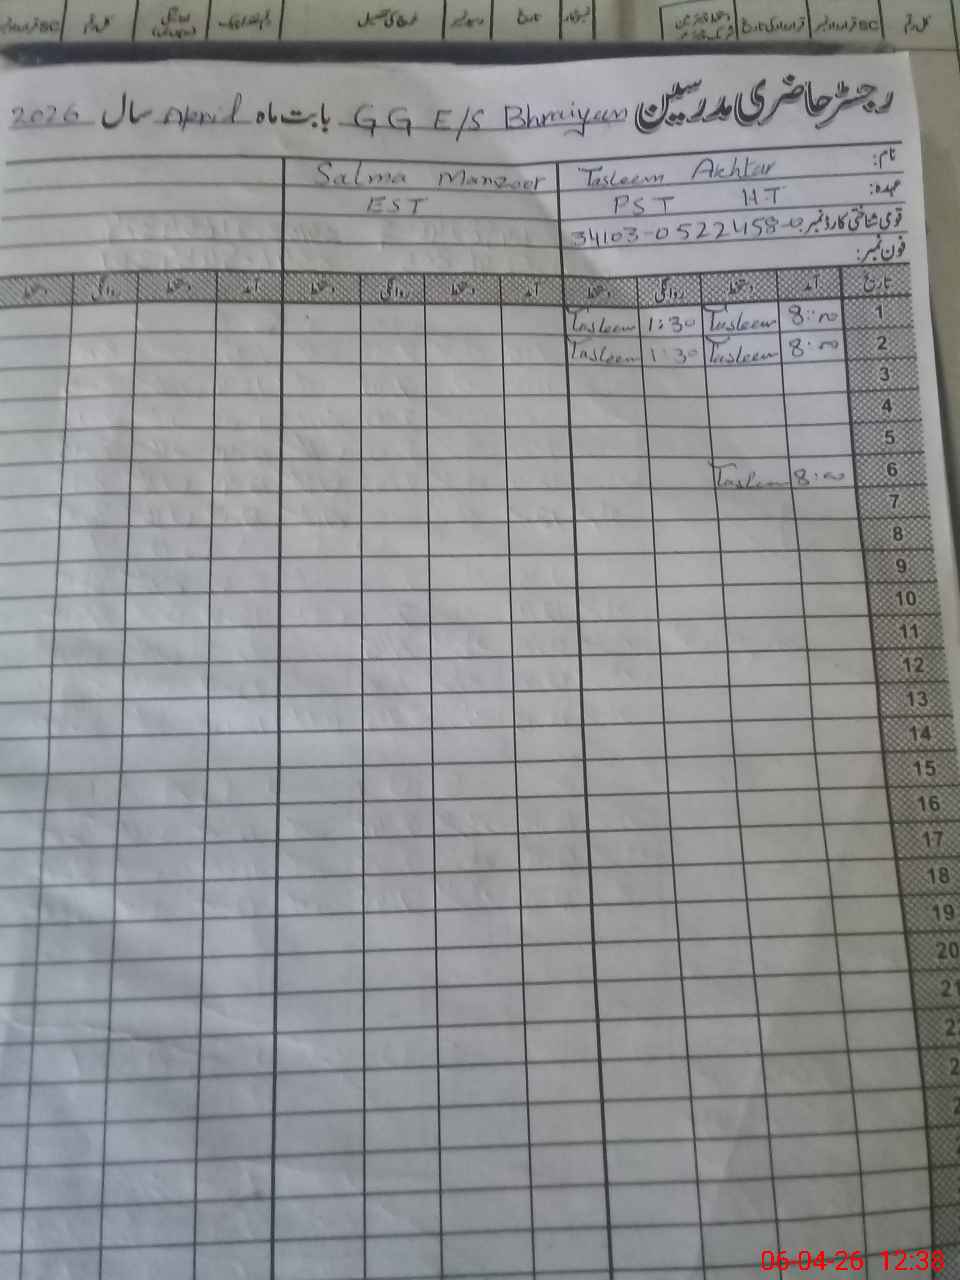 کل رقم
تاریخ
کل رقم
رجسٹر حاضری مدرسین G G E/S Bhraiyan بابت ماہ April سال 2026
نام: Tasleem Akhtar Salma Manzoor
عہدہ: PST H.T EST
قومی شناختی کارڈ نمبر: 34103-0522458-0
فون نمبر:
تاریخ آمد دستخط روانگی دستخط آمد دستخط روانگی دستخط آمد دستخط روانگی دستخط
1 8:00 Tasleem 1:30 Tasleem
2 8:00 Tasleem 1:30 Tasleem
3
4
5
6 8:00 Tasleem
7
8
9
10
11
12
13
14
15
16
17
18
19
20
06-04-26 12:38